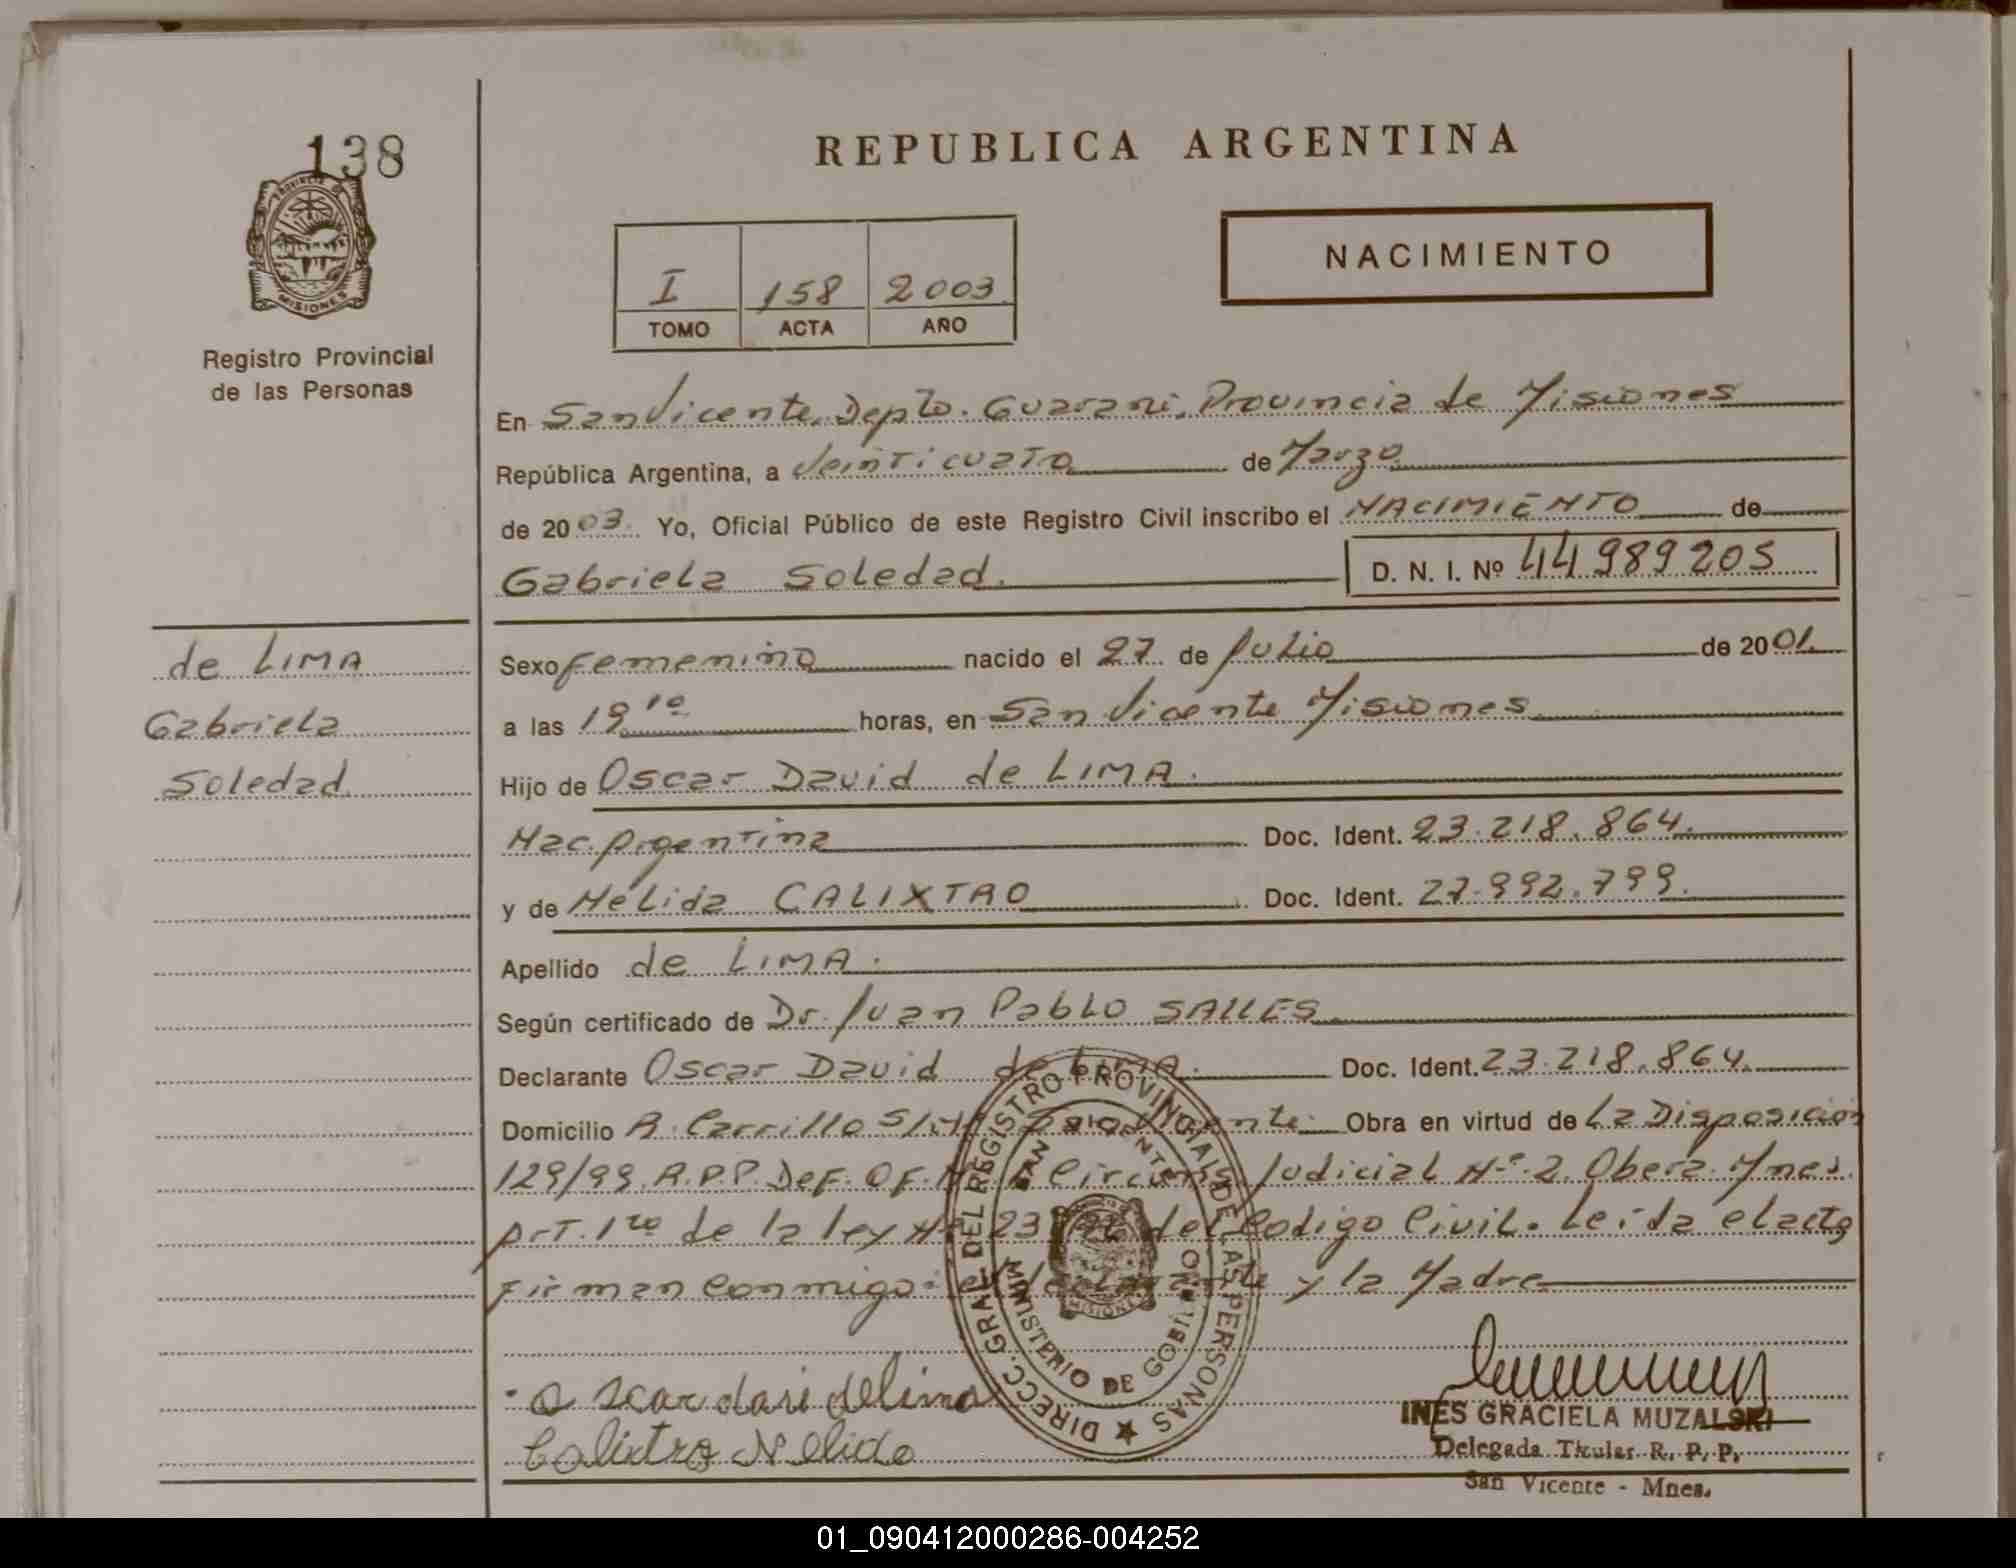 138
PROVINCIA DE
MISIONES
Registro Provincial
de las Personas
REPUBLICA ARGENTINA
I 158 2003
TOMO ACTA AÑO
NACIMIENTO
En San Vicente, Depto. Guarani, Provincia de Misiones
República Argentina, a Veinticuatro de Marzo
de 2003. Yo, Oficial Público de este Registro Civil inscribo el NACIMIENTO de
Gabriela Soledad.
D. N. I. Nº 44989205
de LIMA
Gabriela
Soledad
Sexo femenino nacido el 27 de Julio de 2001.
a las 19 10 horas, en San Vicente Misiones
Hijo de Oscar David de LIMA.
Nac. Argentina Doc. Ident. 23.218.864.
y de Nélida CALIXTRO Doc. Ident. 27.992.799.
Apellido de LIMA.
Según certificado de Dr. Juan Pablo SALLES
Declarante Oscar David de Lima. Doc. Ident. 23.218.864.
Domicilio R. Carrillo S/Nº San Vicente Obra en virtud de La Disposicion
129/99. R.P.P. Def. Of. Judicial Nº 2. Obera. Mnes.
Art. 1ro de la ley Nº del Codigo Civil. Leida el acta
Firman Conmigo: el declarante y la Madre
DIRECC. GRAL. DEL REGISTRO PROVINCIAL DE LAS PERSONAS
SAN VICENTE
MINISTERIO DE GOBIERNO
MISIONES
Oscar davi delima
Calixtro Nelida
INES GRACIELA MUZALSKI
Delegada Titular R. P. P.
San Vicente - Mnes.
01_090412000286-004252